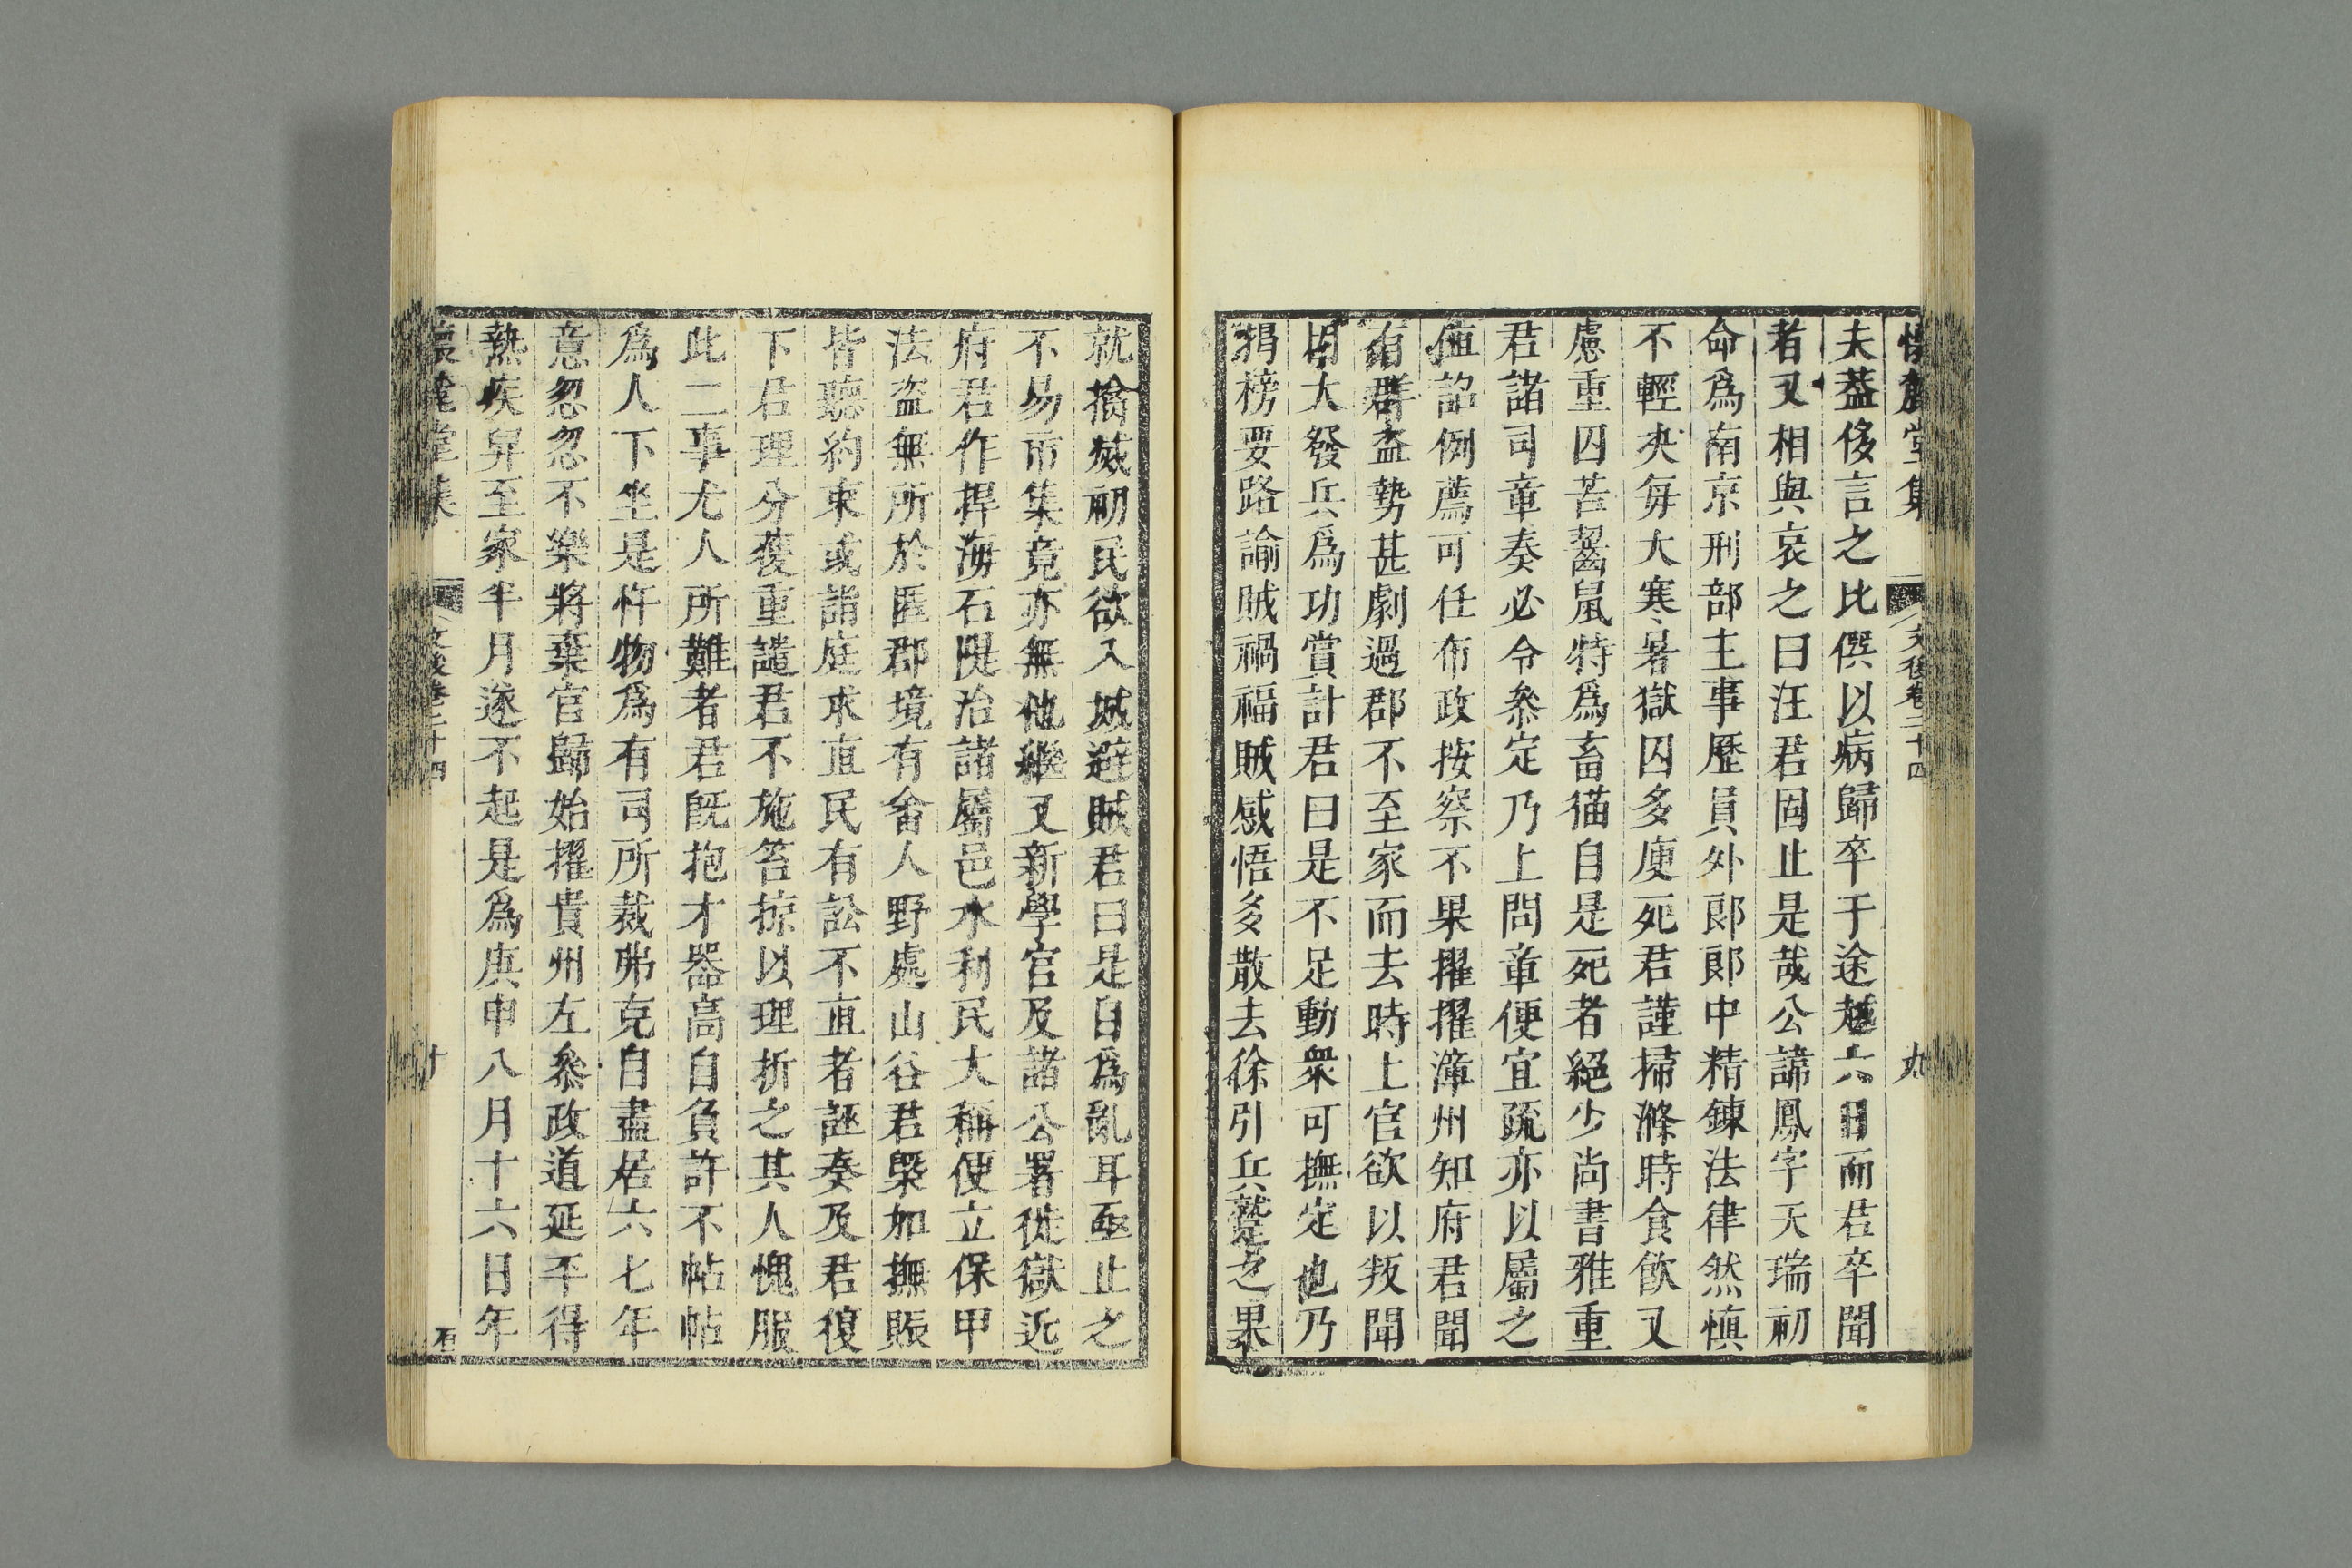 懷麓堂集 文後卷二十四 九
夫葢侈言之比僎以病歸卒于途越六日而君卒聞
者又相與哀之曰汪君固止是哉公諱鳳字天瑞初
命爲南京刑部主事歷員外郎郎中精錬法律然慎
不輕决毎大寒暑獄囚多庾死君謹掃滌時食飲又
慮重囚苦齧鼠特爲畜猫自是死者絕少尚書雅重
君諸司章奏必令叅定乃上問章便宜疏亦以屬之
值詔例薦可任布政按察不果擢擢漳州知府君聞
有群盗勢甚劇過郡不至家而去時上官欲以叛聞
因大發兵爲功賞計君曰是不足動衆可撫定也乃
揭榜要路諭賊禍福賊感悟多散去徐引兵躡之果
就擒㓕初民欲入城避賊君曰是自爲亂耳亟止之
不易市集竟亦無他繼又新學官及諸公署徙獄近
府君作捍海石隄治諸屬邑水利民大稱便立保甲
法盗無所於匿郡境有畬人野處山谷君槩加撫賑
皆聽約束或詣庭求直民有訟不直者誣奏及君復
下君理分獲重譴君不施笞掠以理折之其人愧服
此二事尤人所難者君既抱才器高自負許不帖帖
爲人下坐是忤物爲有司所裁弗克自盡居六七年
意忽忽不樂將棄官歸始擢貴州左叅政道延平得
熱疾舁至家半月遂不起是爲庚申八月十六日年
懷麓堂集 文後卷二十四 十